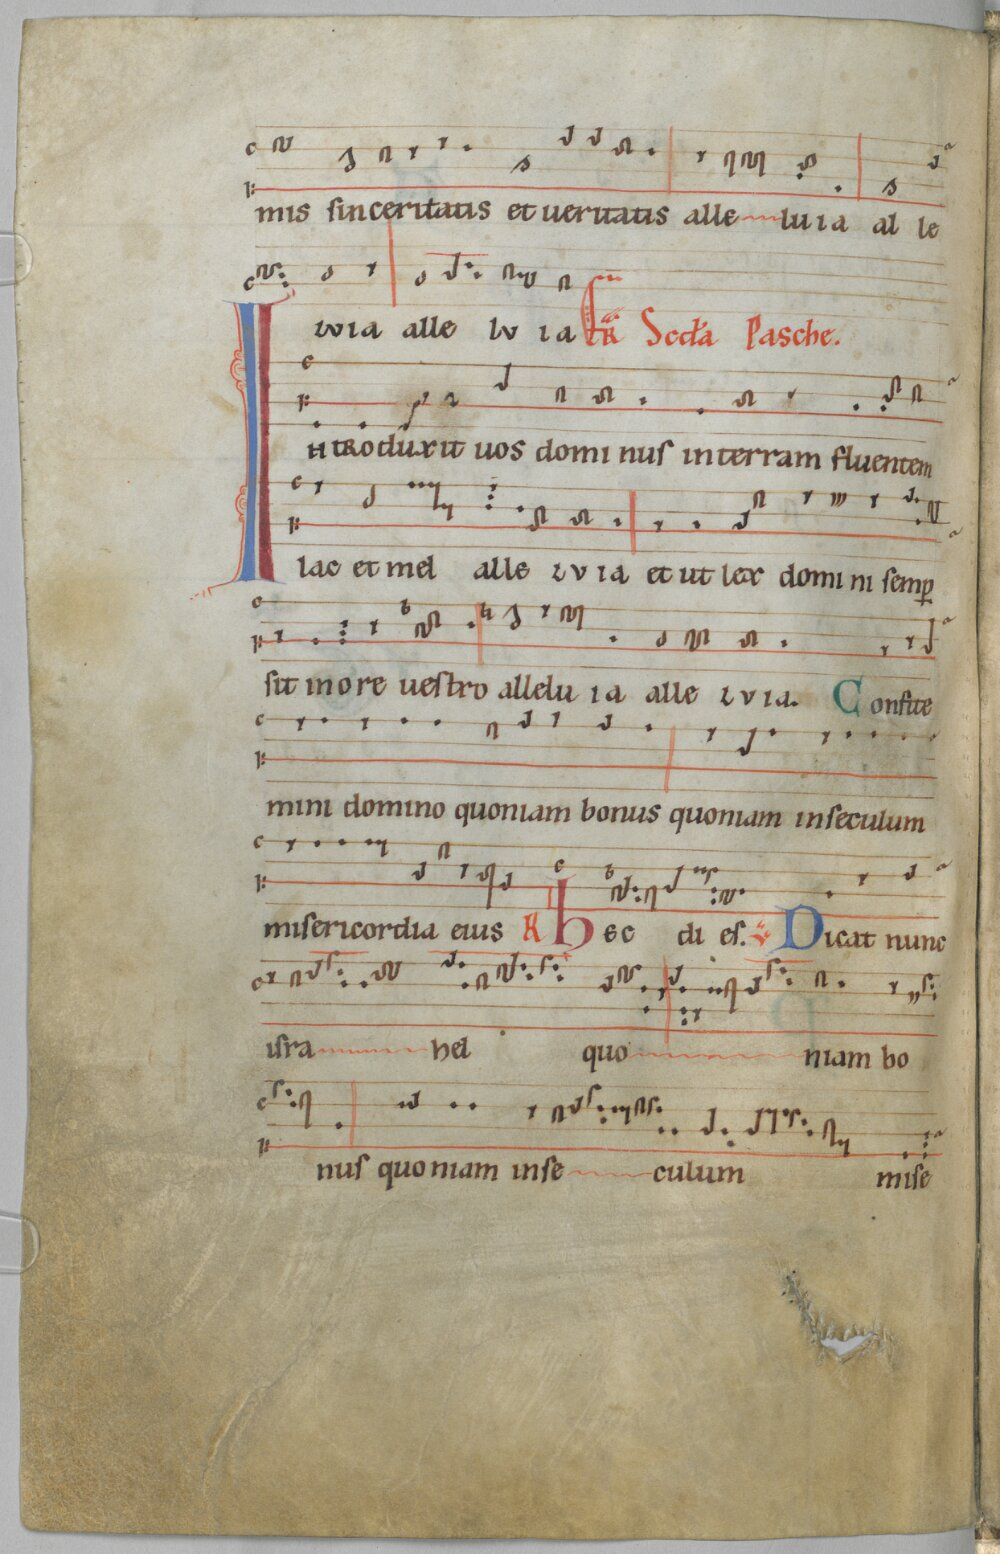 mis sinceritatis et ueritatis alle luia al le
luia alle lu ia Scda Pasche.
Introduxit uos domi nus in terram fluentem
lac et mel alle luia et ut lex domi ni semp
sit in ore uestro allelu ia alle luia. Confite
mini domino quoniam bonus quoniam in seculum
misericordia eius R hec di es. V Dicat nunc
isra hel quo niam bo
nus quoniam in se culum mise